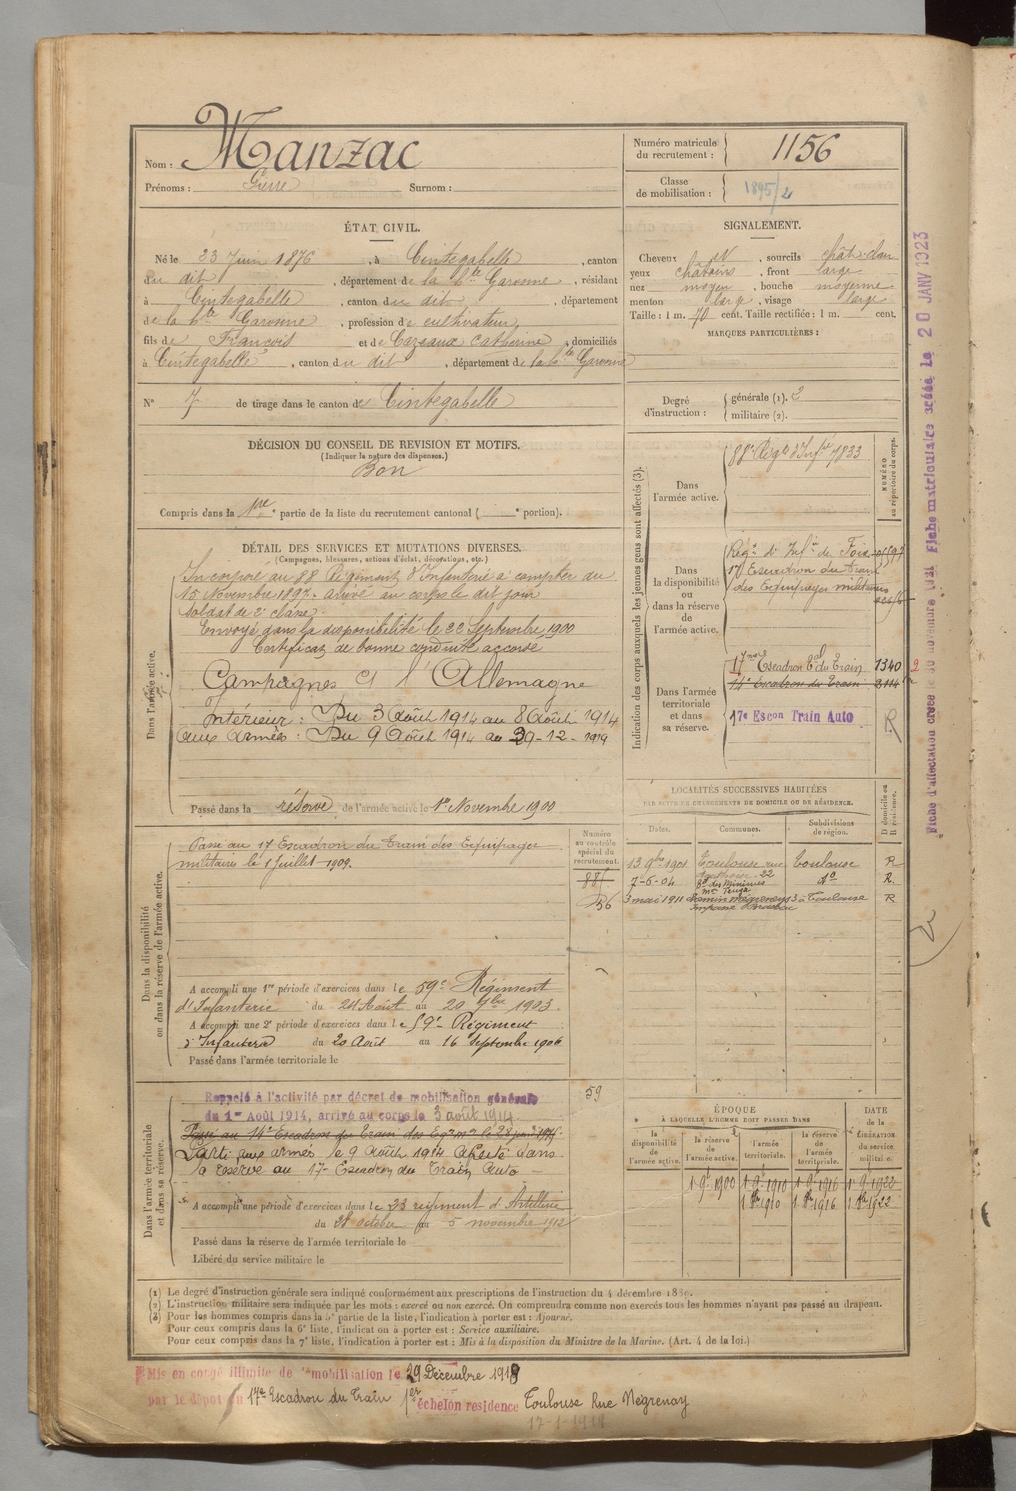 Nom : Manzac
Prénoms : Pierre Surnom :
Numéro matricule du recrutement : 1156
Classe de mobilisation : 1895/2
ÉTAT CIVIL.
Né le 23 Juin 1876, à Cintegabelle, canton
du dit, département de la Hte Garonne, résidant
à Cintegabelle, canton du dit, département
de la Hte Garonne, profession de cultivateur,
fils de François et de Cazeaux Catherine, domiciliés
à Cintegabelle, canton du dit, département de la Hte Garonne
N° 7 de tirage dans le canton de Cintegabelle
SIGNALEMENT.
Cheveux , sourcils chât. clair
yeux châtains, front large
nez moyen, bouche moyenne
menton large, visage large
Taille : 1 m. 70 cent. Taille rectifiée : 1 m. cent.
MARQUES PARTICULIÈRES :
Degré d'instruction : générale (1). 2
militaire (2).
DÉCISION DU CONSEIL DE REVISION ET MOTIFS.
(Indiquer la nature des dispenses.)
Bon
Compris dans la 1re partie de la liste du recrutement cantonal ( e portion).
DÉTAIL DES SERVICES ET MUTATIONS DIVERSES.
(Campagnes, blessures, actions d'éclat, décorations, etc.)
Dans l'armée active.
Incorporé au 88 Régiment d'Infanterie à compter du
15 Novembre 1897. arrivé au corps le dit jour
soldat de 2e classe.
Envoyé dans la disponibilité le 22 Septembre 1900
Certificat de bonne conduite accordé
Campagnes Ct l'Allemagne
Intérieur : Du 3 Août 1914 au 8 Août 1914
aux armées : Du 9 Août 1914 au 29-12-1919
Passé dans la réserve de l'armée active le 1er Novembre 1900
Indication des corps auxquels les jeunes gens sont affectés (3).
NUMÉRO au répertoire du corps.
Dans l'armée active. 88e Régt d'Infie 7833
Dans la disponibilité ou dans la réserve de l'armée active.
Régt d'Infie de Foix
17 Escadron du Train
des Equipages militaires
Dans l'armée territoriale et dans sa réserve.
17me Escadron Tal du Train 1340
14e Escadron du Train 2114
17e Escon Train Auto R
LOCALITÉS SUCCESSIVES HABITÉES
PAR SUITE DE CHANGEMENTS DE DOMICILE OU DE RÉSIDENCE.
Dates. Communes. Subdivisions de région. D domicile ou R résidence.
13 9bre 1901 Toulouse rue 22 Toulouse R
7-6-04 Bd des Minimes do R.
3 mai 1911 chemin Négreneys 3 à Toulouse R
Numéro au contrôle spécial du recrutement.
881
536
59
Dans la disponibilité ou dans la réserve de l'armée active.
Passé au 17 Escadron du Train des Equipages
militaires le 1 Juillet 1909.
A accompli une 1re période d'exercices dans le 59e Régiment
d'Infanterie du 24 Août au 20 7bre 1903.
A accompli une 2e période d'exercices dans le 59e Régiment
d'Infanterie du 20 Août au 16 Septembre 1906
Passé dans l'armée territoriale le
Dans l'armée territoriale et dans sa réserve.
Rappelé à l'activité par décret de mobilisation générale
du 1er Août 1914, arrivé au corps le 3 août 1914
Passé au 14e Escadron du Train des Eqges mres le 28
Parti aux armées le 9 Août 1914 affecté dans
la réserve au 17e Escadron du Train Auto
A accompli une période d'exercices dans le 23 régiment d'Artillerie
du 28 octobre au 5 novembre 1912
Passé dans la réserve de l'armée territoriale le
Libéré du service militaire le
ÉPOQUE
À LAQUELLE L'HOMME DOIT PASSER DANS
la disponibilité de l'armée active. la réserve de l'armée active. l'armée territoriale. la réserve de l'armée territoriale. DATE de la LIBÉRATION du service militaire.
1 9bre 1900 1 9bre 1910 1 9bre 1916 1 9bre 1922
1 8bre 1910 1 8bre 1916 1 8bre 1922
(1) Le degré d'instruction générale sera indiqué conformément aux prescriptions de l'instruction du 4 décembre 1889.
(2) L'instruction militaire sera indiquée par les mots : exercé ou non exercé. On comprendra comme non exercés tous les hommes n'ayant pas passé au drapeau.
(3) Pour les hommes compris dans la 5e partie de la liste, l'indication à porter est : Ajourné.
Pour ceux compris dans la 6e liste, l'indication à porter est : Service auxiliaire.
Pour ceux compris dans la 7e liste, l'indication à porter est : Mis à la disposition du Ministre de la Marine. (Art. 4 de la loi.)
Mis en congé illimité de démobilisation le 29 Décembre 1918
par le dépôt du 17e Escadron du Train 1er échelon residence Toulouse Rue Négrenay
17-1-1919
Fiche d'affectation créée le 30 novembre 1921 Fiche matriculaire créée le 20 JANV 1923